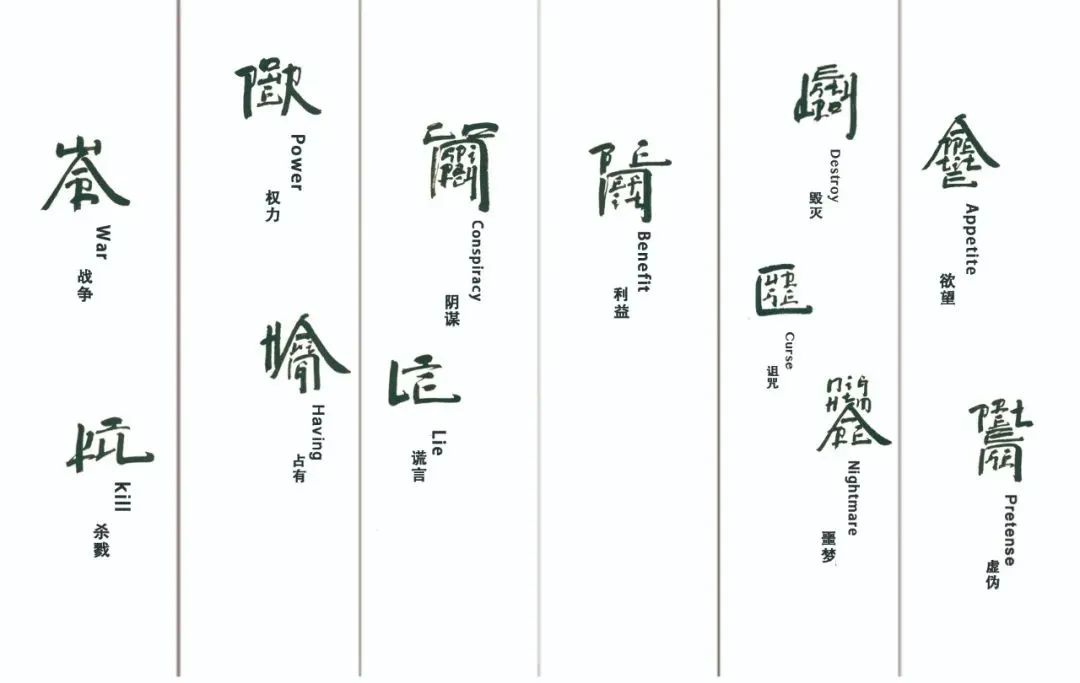 War
战争
kill
杀戮
Power
权力
Having
占有
Conspiracy
阴谋
Lie
谎言
Benefit
利益
Destroy
毁灭
Curse
诅咒
Nightmare
噩梦
Appetite
欲望
Pretense
虚伪